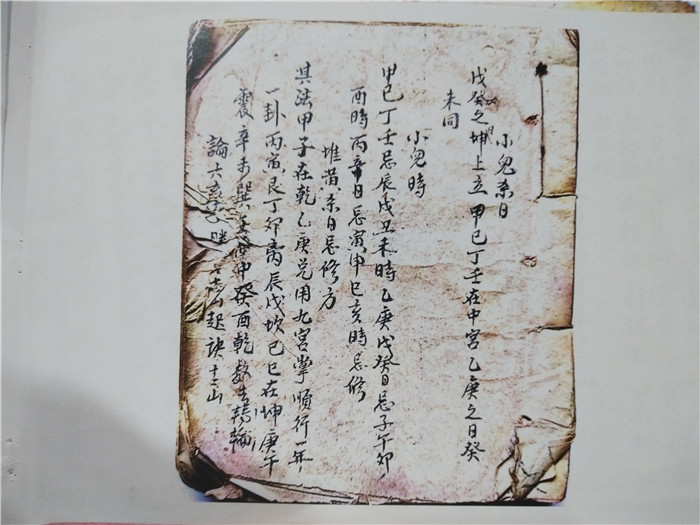 小兒杀日
戊癸之坤上立 甲巳丁壬在中宮乙庚之日癸
未同
小兒時
甲巳丁壬忌辰戌丑未時乙庚戊癸日忌子午卯
酉時丙辛日忌寅申巳亥時忌修
堆黄杀日忌修方
其法甲子在乾乙庚兑用九宮掌順行一年
一卦丙寅艮丁卯离辰戊坎己巳在坤庚午
震辛未巽 申癸酉乾数去轉輪
論六 起訣十二山